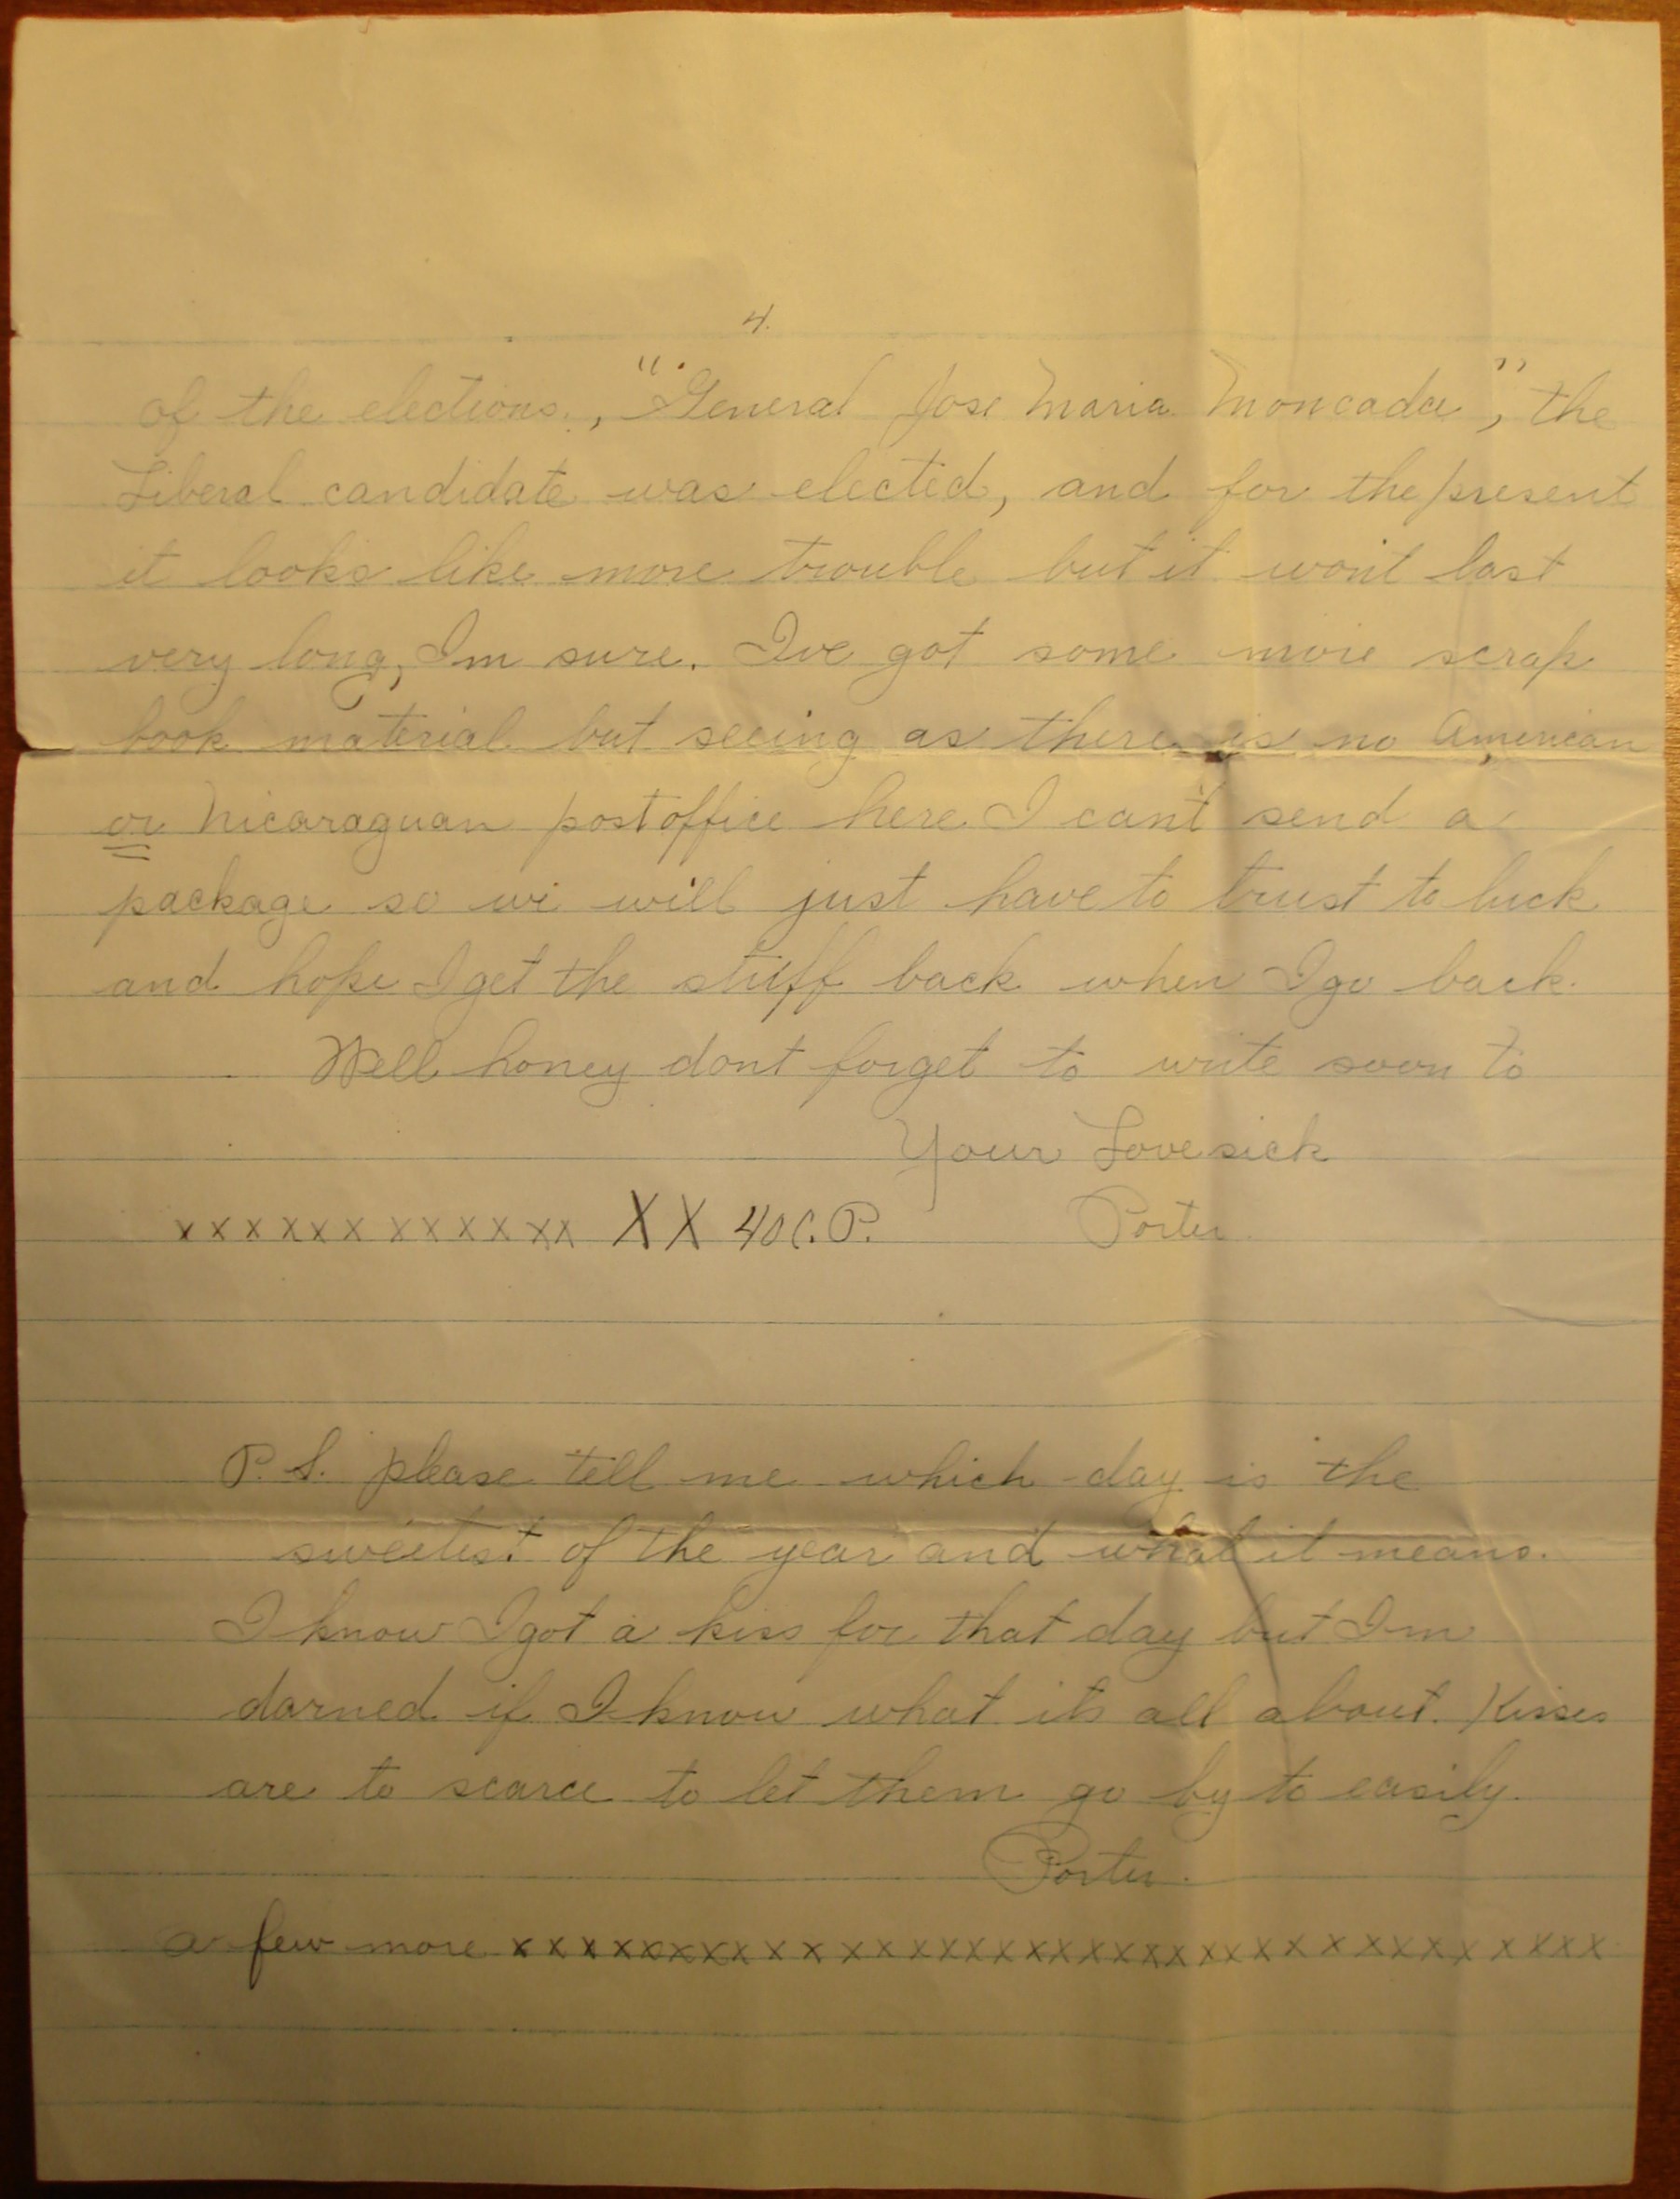 4.
of the elections., "General Jose Maria Moncada", the
Liberal candidate was elected, and for the present
it looks like more trouble but it won't last
very long, Im sure. Ive got some more scrap
book material but seeing as there is no American
or Nicaraguan postoffice here I can't send a
package so we will just have to trust to luck
and hope I get the stuff back when I go back.
Well honey dont forget to write soon to
Your Lovesick
x x x x x x x x x x x x X X 40 C.P. Porter.
P.S. please tell me which day is the
sweetest of the year and what it means.
I know I got a kiss for that day but Im
darned if I know what its all about. Kisses
are to scarce to let them go by to easily.
Porter.
a few more x x x x x x x x x x x x x x x x x x x x x x x x x x x x x x x x x x